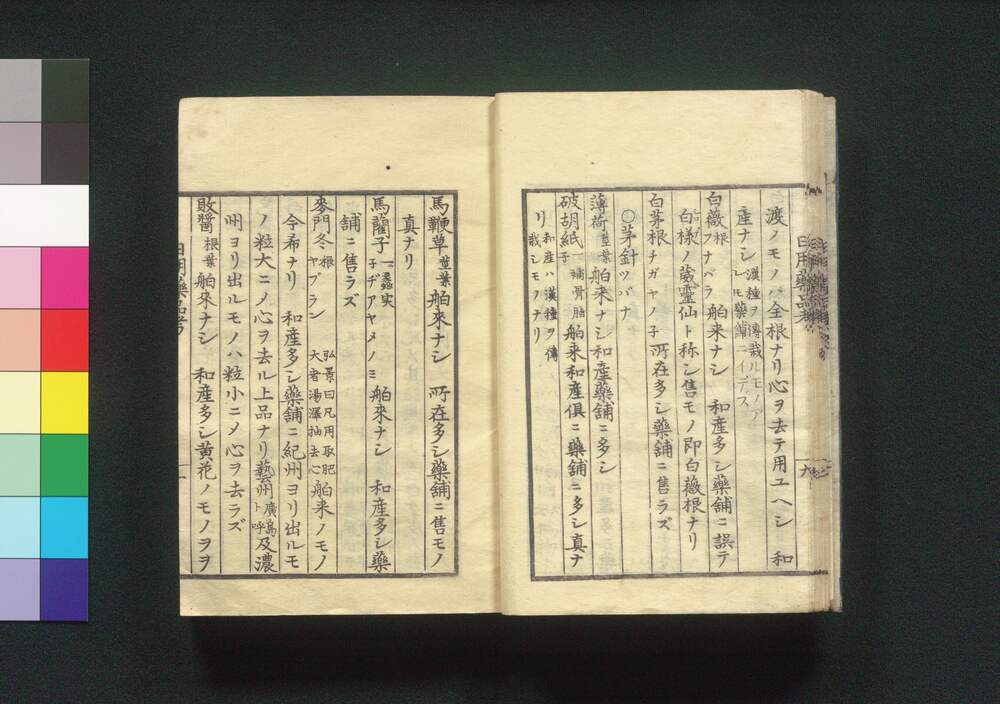 渡ノモノハ全根ナリ心ヲ去テ用ユヘシ 和
産ナシ漢種ヲ傳栽ルモノアレドモ藥鋪ニイデズ
白薇根フナバラ 舶来ナシ 和産多シ藥舗ニ誤テ
白様ノ葳靈仙ト称シ售モノ即白薇根ナリ
白茅根チガヤノ子 所在多シ藥舗ニ售ラズ
○茅針ツバナ
薄荷莖葉 舶来ナシ和産藥舗ニ多シ
破胡紙子一補骨脂 舶来和産俱ニ藥舗ニ多シ真ナ
リ和産ハ漢種ヲ傳栽シモノナリ
日用藥品考
六
馬鞭草莖葉 舶來ナシ 所在多シ藥舖ニ售モノ
真ナリ
馬藺子一蠡実子ヂアヤメノミ 舶來ナシ 和産多シ藥
舗ニ售ラズ
麥門冬根ヤブラン 弘景曰凡用取肥大者湯澤抽去心 舶来ノモノ
今希ナリ 和産多シ藥舗ニ紀州ヨリ出ルモ
ノ粒大ニメ心ヲ去ル上品ナリ藝州廣島ト呼及濃
州ヨリ出ルモノハ粒小ニメ心ヲ去ラズ
敗醬根葉 舶來ナシ 和産多シ黄花ノモノヲヲ
日用藥品考